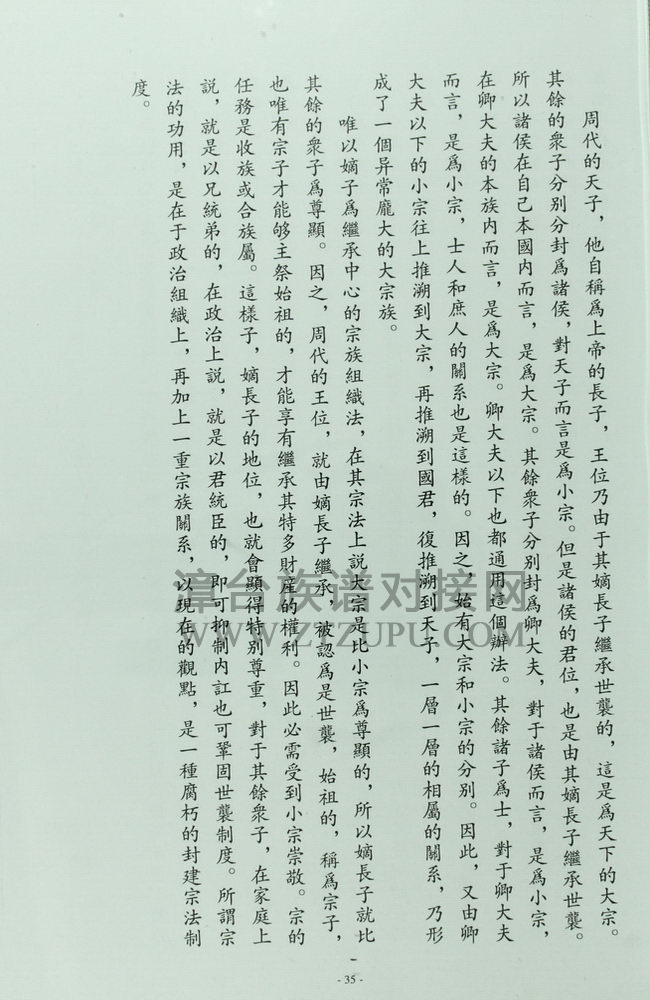 周代的天子，他自稱爲上帝的長子，王位乃由于其嫡長子繼承世襲的，這是爲天下的大宗。
其餘的衆子分别分封爲諸侯，對天子而言是爲小宗。但是諸侯的君位，也是由其嫡長子繼承世襲。
所以諸侯在自己本國内而言，是爲大宗。其餘衆子分别封爲卿大夫，對于諸侯而言，是爲小宗，
在卿大夫的本族内而言，是爲大宗。卿大夫以下也都通用這個辦法。其餘諸子爲士，對于卿大夫
而言，是爲小宗，士人和庶人的關系也是這樣的。因之，始有大宗和小宗的分别。因此，又由卿
大夫以下的小宗往上推溯到大宗，再推溯到國君，復推溯到天子，一層一層的相屬的關系，乃形
成了一個异常龐大的大宗族。
唯以嫡子爲繼承中心的宗族組織法，在其宗法上説大宗是比小宗爲尊顯的，所以嫡長子就比
其餘的衆子爲尊顯。因之，周代的王位，就由嫡長子繼承，被認爲是世襲，始祖的，稱爲宗子，
也唯有宗子才能够主祭始祖的，才能享有繼承其特多財産的權利。因此必需受到小宗崇敬。宗的
任務是收族或合族屬。這樣子，嫡長子的地位，也就會顯得特别尊重，對于其餘衆子，在家庭上
説，就是以兄統弟的，在政治上説，就是以君統臣的，即可抑制内訌也可鞏固世襲制度。所謂宗
法的功用，是在于政治組織上，再加上一重宗族關系，以現在的觀點，是一種腐朽的封建宗法制
度。
漳台族谱对接网
WWW.ZTZUPU.COM
- 35 -